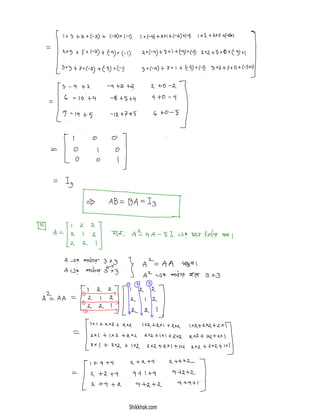 = [ 1×3 + 2×(-2) + (-2)×(-1)  1×(-4)+2×1+(-2)×(-1)  1×2+2×0+(-2)×1
2×3 + 5×(-2) + (-4)×(-1)  2×(-4)+5×1+(-4)×(-1)  2×2+5×0+(-4)×1
3×3 + 7×(-2) + (-5)×(-1)  3×(-4)+7×1+(-5)×(-1)  3×2+7×0+(-5)×1 ]
= [ 3 - 4 + 2  -4+2+2  2+0-2
6 - 10 + 4  -8+5+4  4+0-4
9 - 14 + 5  -12+7+5  6+0-5 ]
= [ 1 0 0
0 1 0
0 0 1 ]
= I₃
⇒ AB = BA = I₃
A = [ 1 2 2
2 1 2
2 2 1 ] A² - 4A - 5I এর মান নির্ণয় কর।
A এর 3×3
A এর 3×3
A² = AA
A² এর 3×3
A² = AA = [ 1 2 2
2 1 2
2 2 1 ] [ 1 2 2
2 1 2
2 2 1 ]
= [ 1×1 + 2×2 + 2×2  1×2+2×1+2×2  1×2+2×2+2×1
2×1 + 1×2 + 2×2  2×2+1×1+2×2  2×2+1×2+2×1
2×1 + 2×2 + 1×2  2×2+2×1+1×2  2×2+2×2+1×1 ]
= [ 1+4+4  2+2+4  2+4+2
2+2+4  4+1+4  4+2+2
2+4+2  4+2+2  4+4+1 ]
Shikkhok.com